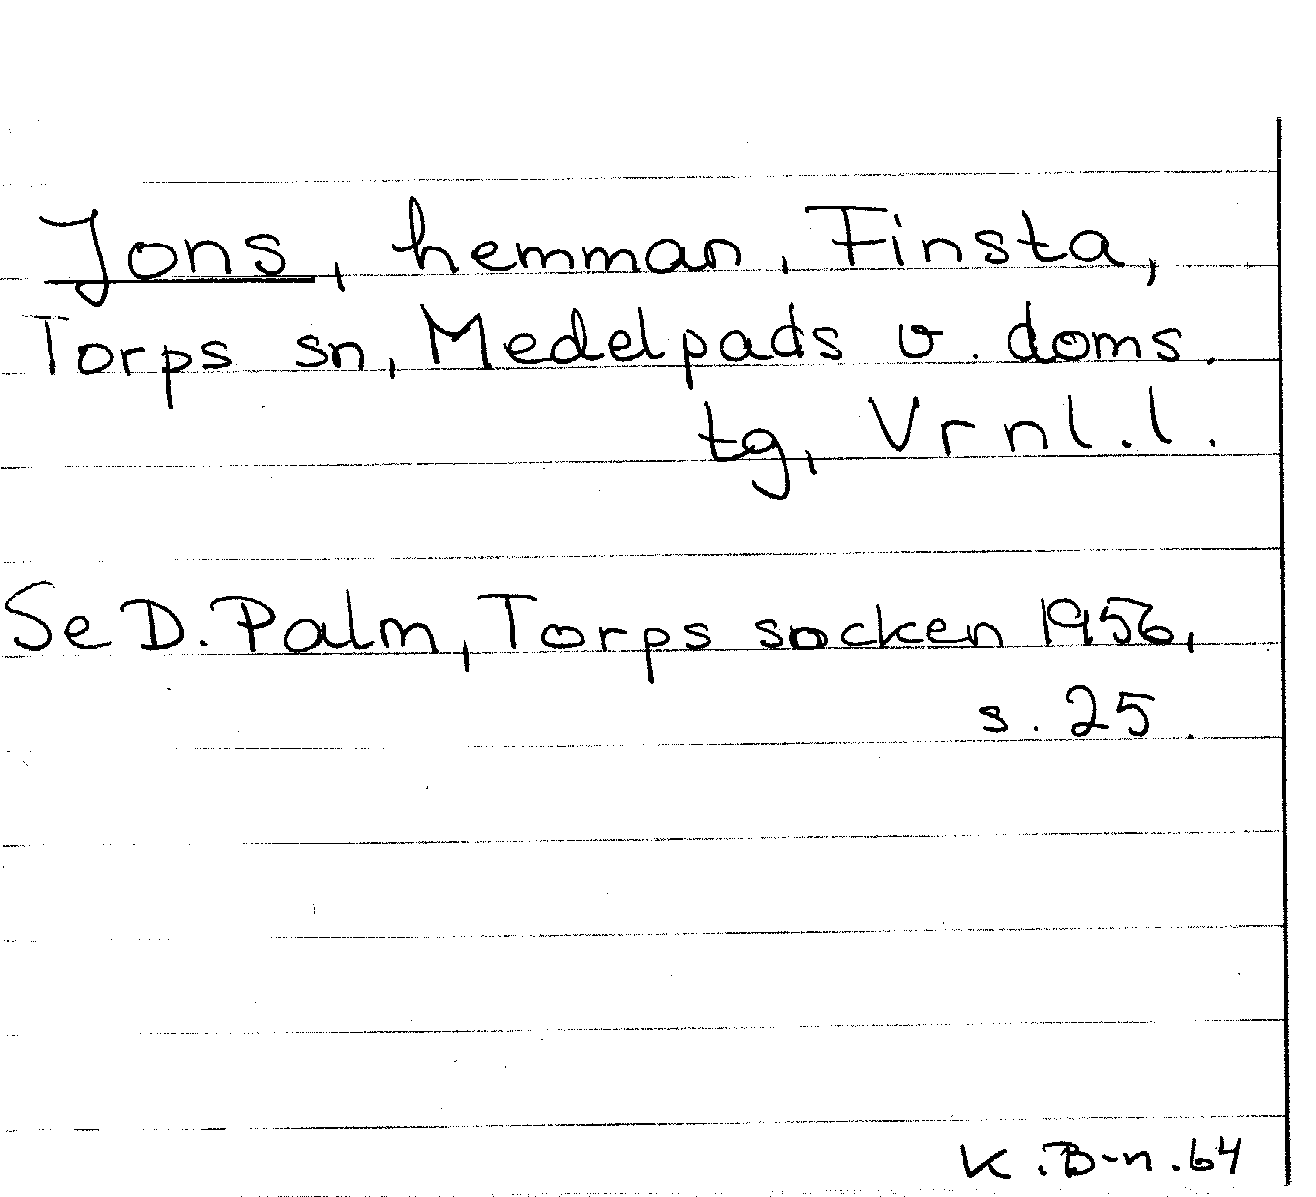 Jons, hemman, Finsta,
Torps sn, Medelpads v. doms.
tg, Vrnl.l.
Se D. Palm, Torps socken 1956,
s. 25.
K.B-n.64